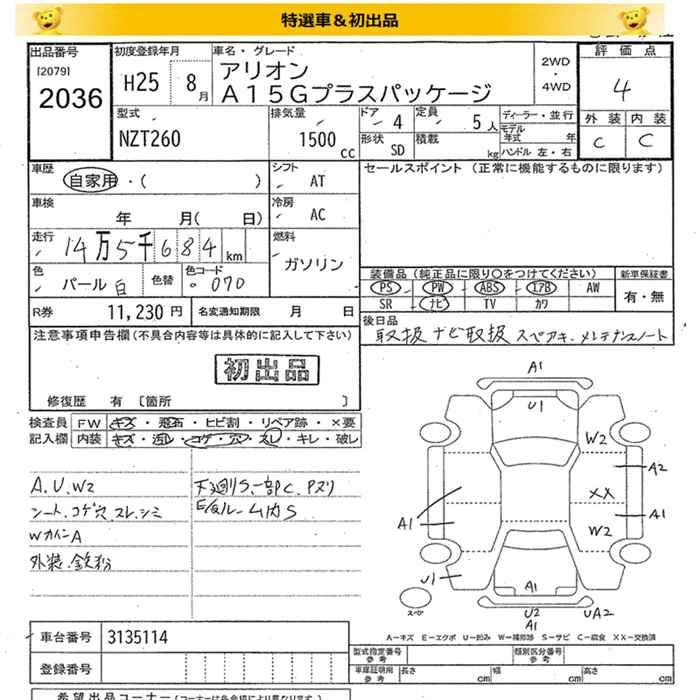 特選車&初出品
出品番号
[2079]
2036
初度登録年月
H25 8月
車名・グレード
アリオン
A15Gプラスパッケージ
2WD
・
4WD
評価点
4
外装 内装
C C
型式
NZT260
排気量
1500 cc
ドア 4
定員 5人
形状 SD
積載 kg
ディーラー・並行
モデル年式 年
ハンドル 左・右
車歴
自家用・( )
シフト
AT
セールスポイント (正常に機能するものに限ります)
車検
年 月( 日)
冷房
AC
走行
14万5千684km
燃料
ガソリン
色
パール白
色替
色コード
070
装備品 (純正品に限り○をつけてください)
新車保証書
PS PW ABS エアB AW
SR ナビ TV カワ
有・無
R券 11,230円
名変通知期限 月 日
後日品
取扱 ナビ取扱 スペアキ.メンテナンスノート
注意事項申告欄(不具合内容等は具体的に記入して下さい)
初出品
修復歴 有 〔箇所 〕
検査員記入欄
FW キズ・飛石・ヒビ割・リペア跡・×要
内装 キズ・汚れ・コゲ・穴・スレ・キレ・破レ
A.U.W2
シート.コゲ穴.スレ.シミ
WカイニA
外装.鉄粉
下廻りS.一部C.Pヌリ
E/Gルーム内S
A1
U1
W2
A2
XX
A1
A1
W2
U1
A1
U2
A1
UA2
A-キズ E-エクボ U-凹み W-補修跡 S-サビ C-腐食 XX-交換済
車台番号 3135114
登録番号
型式指定番号
参考
類別区分番号
参考
車庫証明用
参考
長さ cm
幅 cm
高さ cm
希望出品コーナー